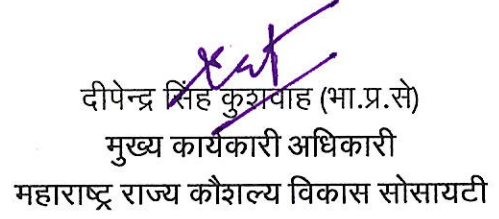 दीपेन्द्र सिंह कुशवाह (भा.प्र.से)
मुख्य कार्यकारी अधिकारी
महाराष्ट्र राज्य कौशल्य विकास सोसायटी